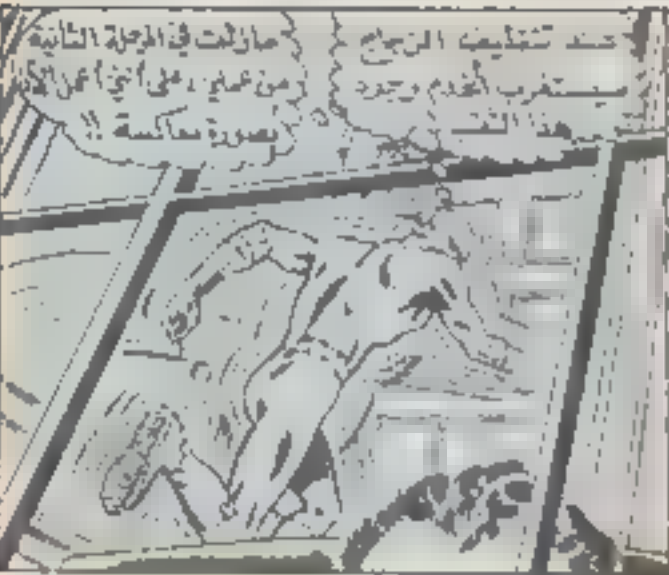 عند تنظيف الزجاج
سيستغرب الخدم وجود
هذا
مازلت في المرحلة الثانية
من عملي، على أنني
بصورة معاكسة !!